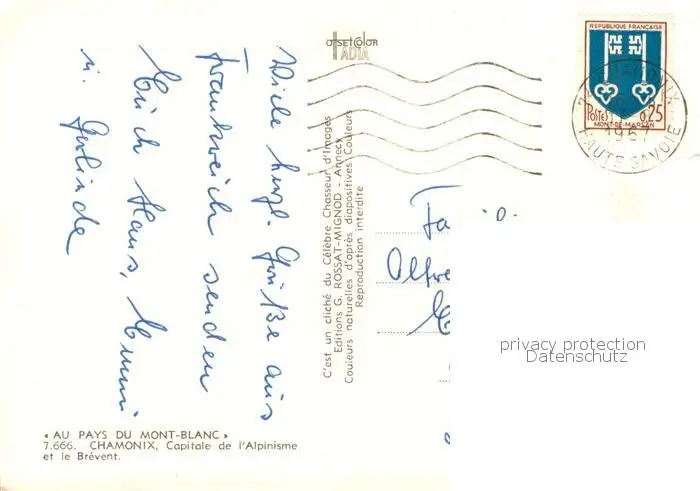 Viele herzl. Grüße aus
Frankreich senden
Euch Hans, Emmi
u. Gerlinde
« AU PAYS DU MONT-BLANC »
7.666. CHAMONIX, Capitale de l'Alpinisme
et le Brévent.
OFFSETCOLOR
IADIA
C'est un cliché du Célèbre Chasseur d'Images
Editions G. ROSSAT-MIGNOD - Annecy
Couleurs naturelles d'après diapositives Couleurs
Reproduction interdite
REPUBLIQUE FRANÇAISE
POSTES 0,25
MONT-DE-MARSAN
CHAMONIX
1967
HAUTE SAVOIE
Fa
Alfre
privacy protection
Datenschutz